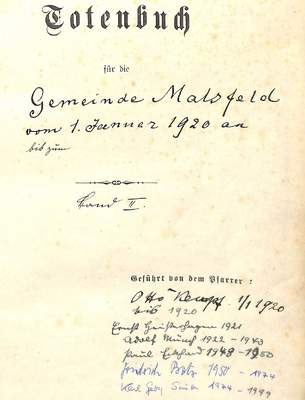 Totenbuch
für die
Gemeinde Malsfeld
vom 1. Januar 1920 an
bis zum
Band II.
Geführt von dem Pfarrer:
Otto 1/1 1920
bis 1920
Ernst 1921
Adolf Münch 1922 - 1943
Paul 1943 - 1950
Friedrich 1951 - 1974
Karl Georg 1974 - 1999